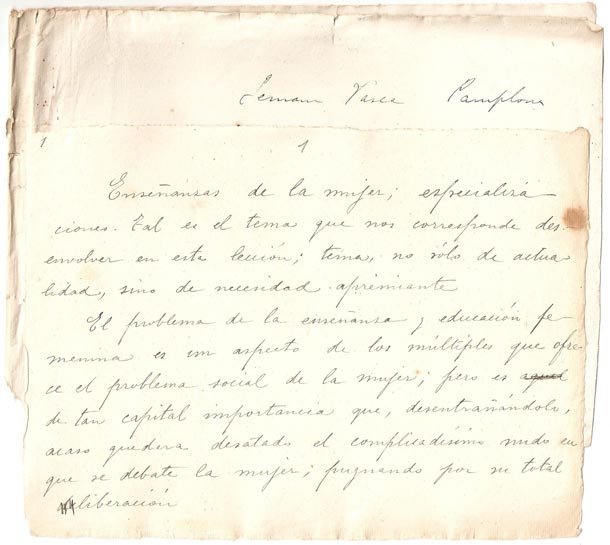 Semana Vasca Pamplona
1 1
Enseñanzas de la mujer; especializa
ciones. Tal es el tema que nos corresponde des
envolver en esta lección; tema, no sólo de actua
lidad, sino de necesidad apremiante
El problema de la enseñanza y educación fe
menina es un aspecto de los múltiples que ofre
ce el problema social de la mujer; pero es
de tan capital importancia que, desentrañándolo,
acaso quedara desatado el complicadísimo nudo en
que se debate la mujer, pugnando por su total
liberación